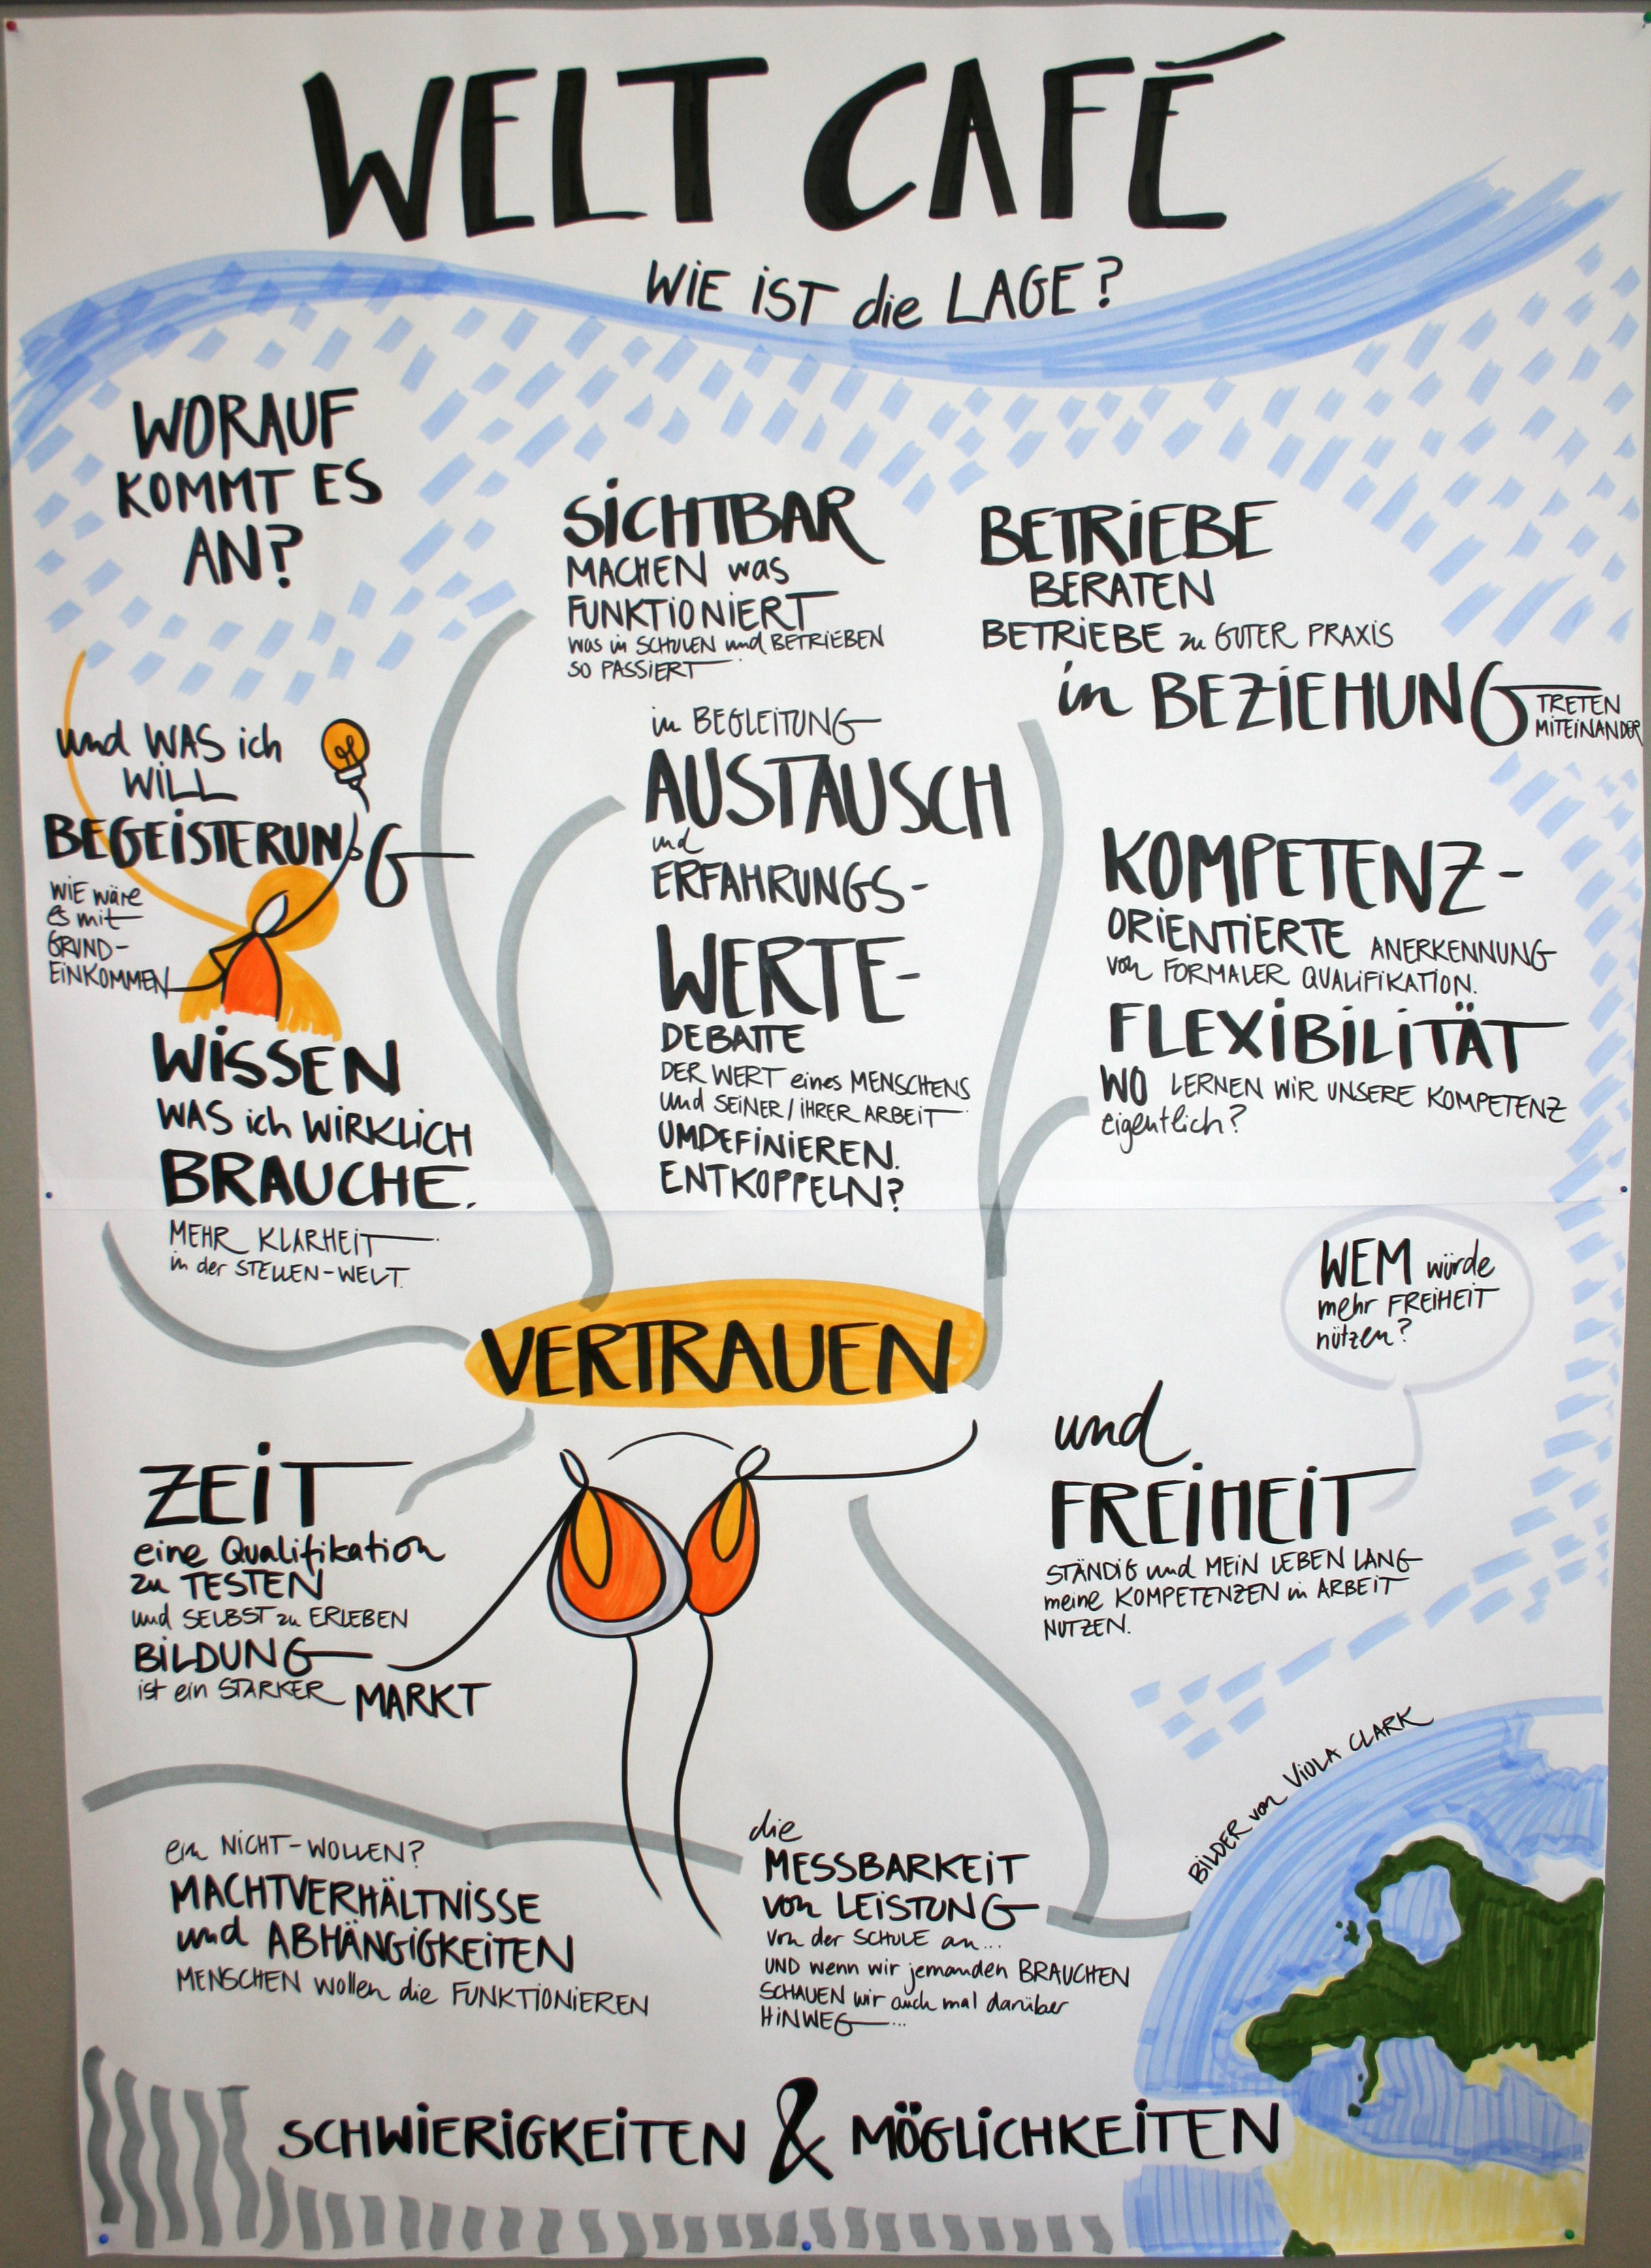 WELT CAFÉ
WIE IST die LAGE?
WORAUF
KOMMT ES
AN?
und WAS ich
WILL
BEGEISTERUNG
WIE wäre
es mit
GRUND-
EINKOMMEN
WISSEN
WAS ich WIRKLICH
BRAUCHE.
MEHR KLARHEIT
in der STELLEN-WELT.
SICHTBAR
MACHEN was
FUNKTIONIERT
was in SCHULEN und BETRIEBEN
SO PASSIERT
in BEGLEITUNG
AUSTAUSCH
und
ERFAHRUNGS-
WERTE-
DEBATTE
DER WERT eines MENSCHENS
und SEINER/IHRER ARBEIT
UMDEFINIEREN.
ENTKOPPELN?
BETRIEBE
BERATEN
BETRIEBE zu GUTER PRAXIS
in BEZIEHUNG TRETEN
MITEINANDER
KOMPETENZ-
ORIENTIERTE ANERKENNUNG
von FORMALER QUALIFIKATION.
FLEXIBILITÄT
WO LERNEN WIR UNSERE KOMPETENZ
eigentlich?
VERTRAUEN
WEM würde
mehr FREIHEIT
nützen?
und
FREIHEIT
STÄNDIG und MEIN LEBEN LANG
meine KOMPETENZEN in ARBEIT
NUTZEN.
ZEIT
eine Qualifikation
zu TESTEN
und SELBST zu ERLEBEN
BILDUNG
ist ein STARKER MARKT
ein NICHT-WOLLEN?
MACHTVERHÄLTNISSE
und ABHÄNGIGKEITEN
MENSCHEN wollen die FUNKTIONIEREN
die
MESSBARKEIT
von LEISTUNG
von der SCHULE an...
UND wenn wir jemanden BRAUCHEN
SCHAUEN wir auch mal darüber
HINWEG...
BILDER von VIOLA CLARK
SCHWIERIGKEITEN & MÖGLICHKEITEN